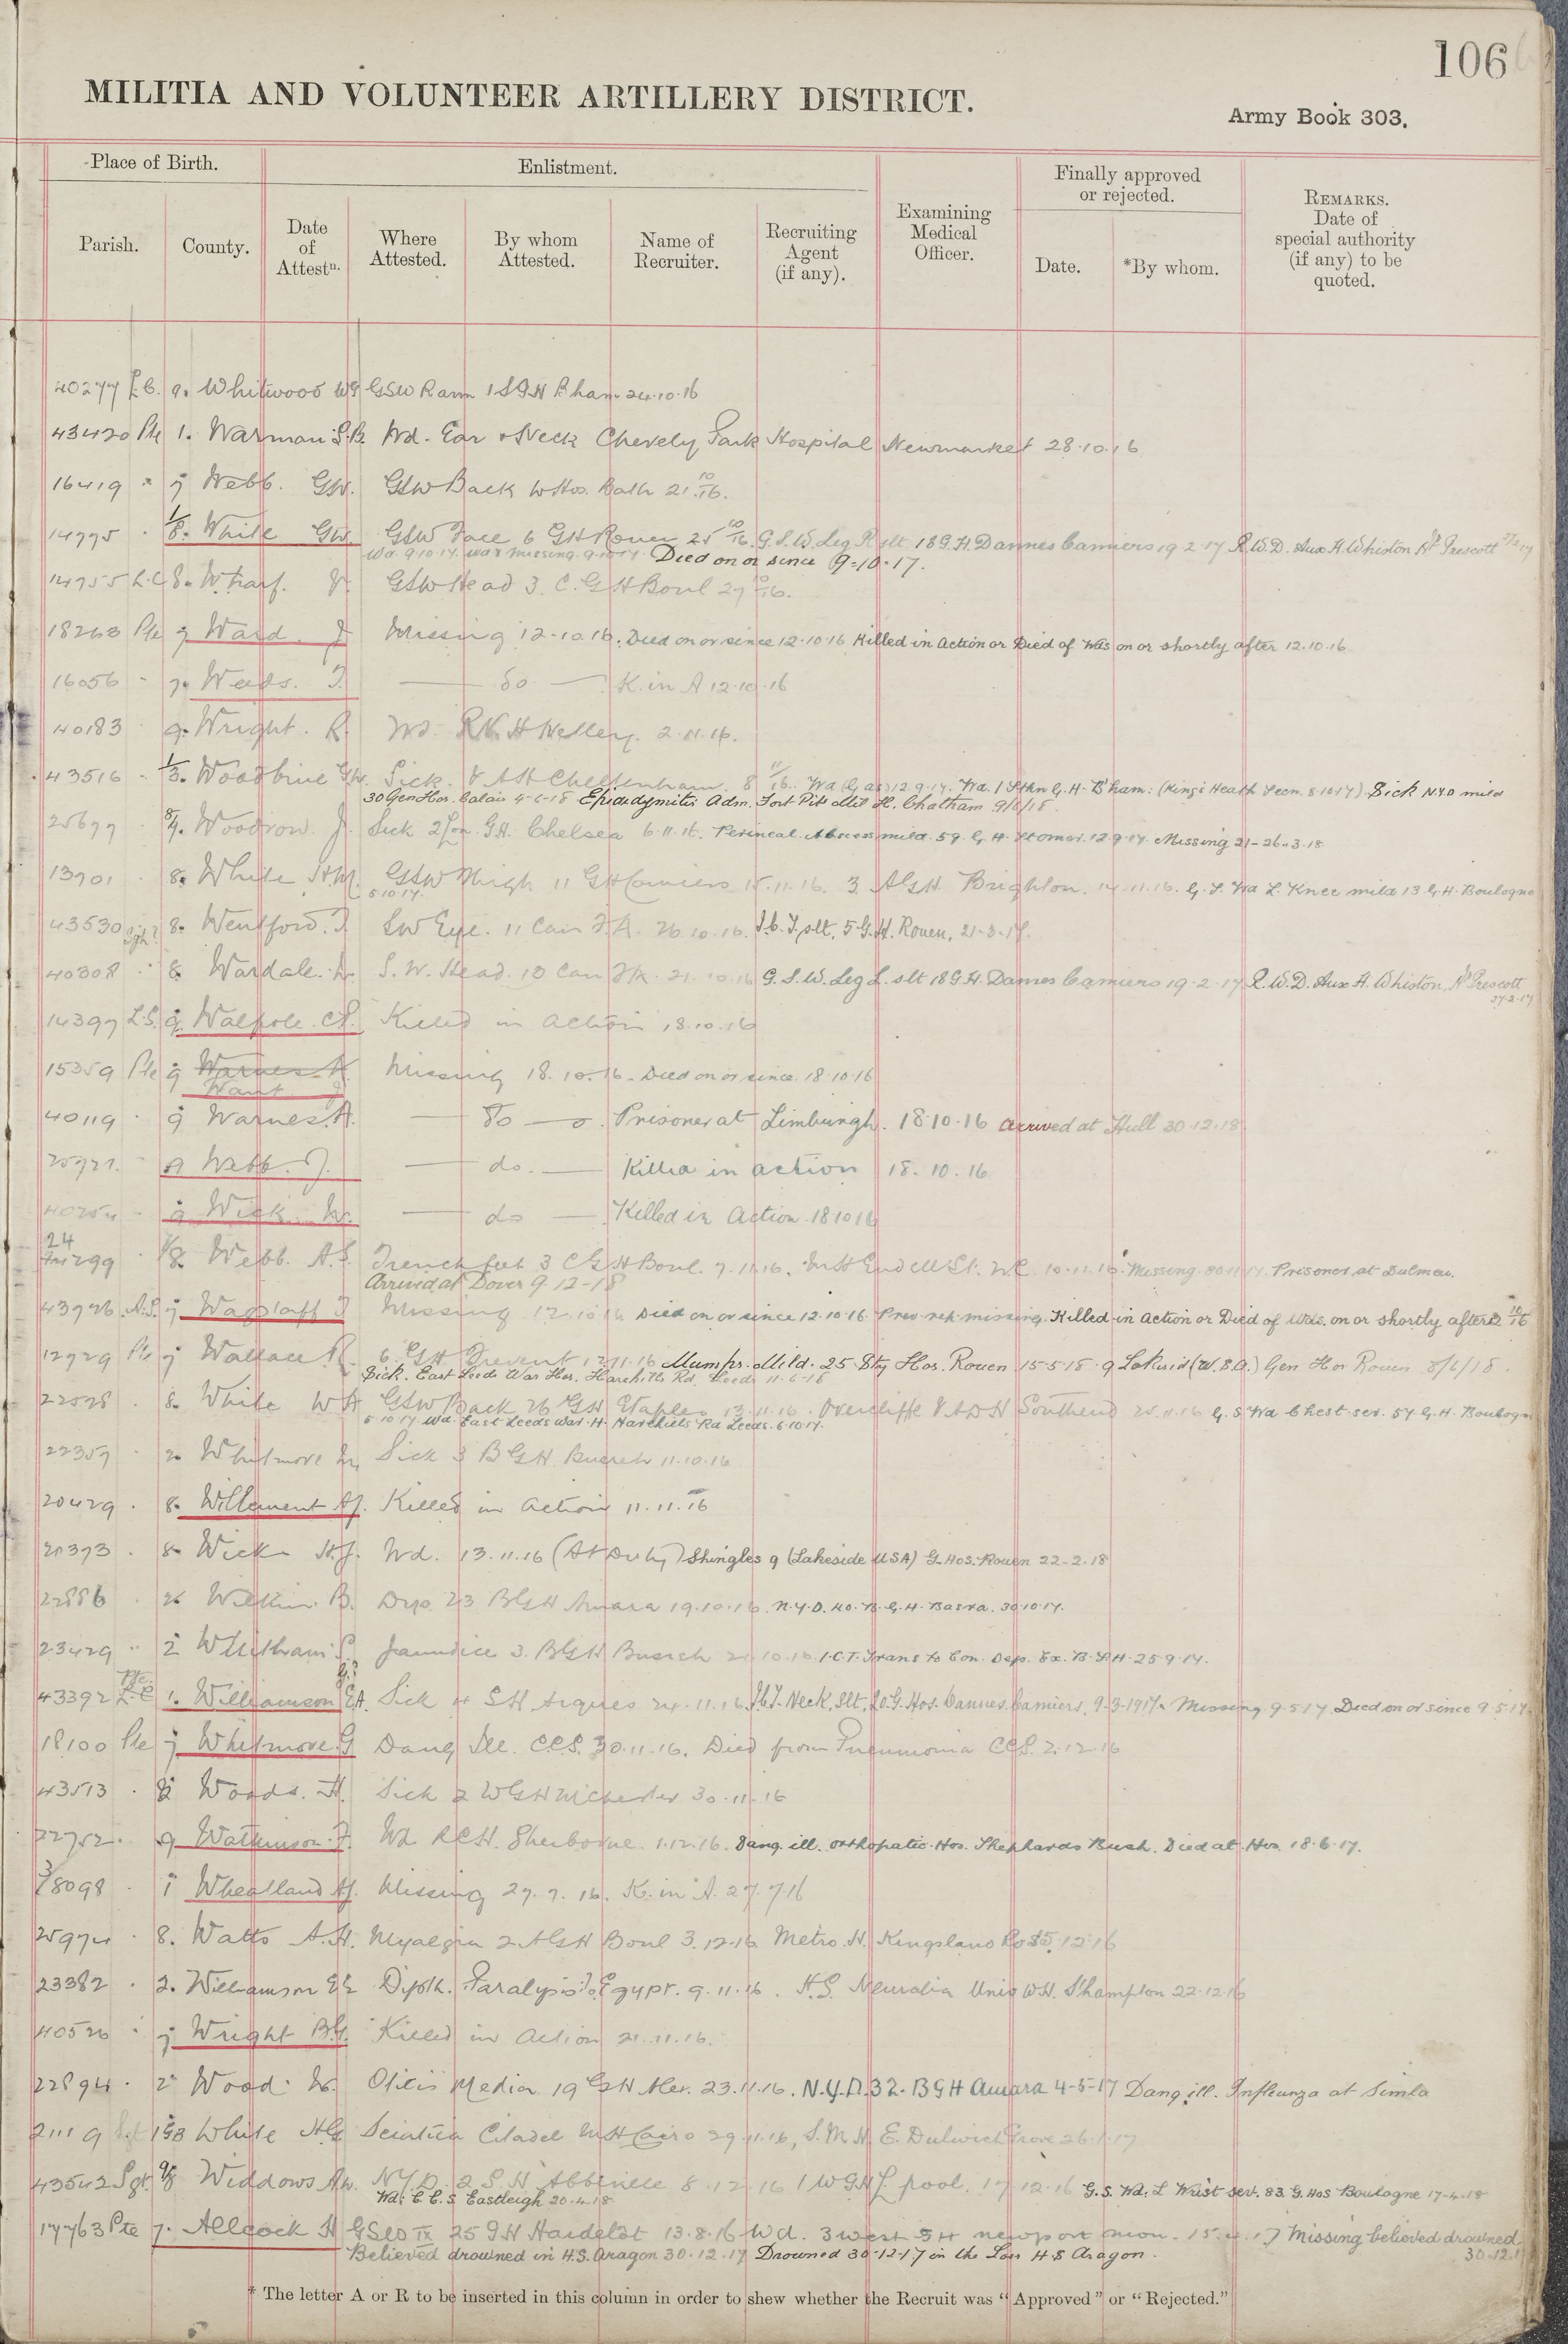 106
MILITIA AND VOLUNTEER ARTILLERY DISTRICT.
Army Book 303.
Place of Birth.
Enlistment.
Finally approved or rejected.
Parish.
County.
Date of Attestn.
Where Attested.
By whom Attested.
Name of Recruiter.
Recruiting Agent (if any).
Examining Medical Officer.
Date.
*By whom.
REMARKS. Date of special authority (if any) to be quoted.
40277 L.C. 9. Whitwood WG GSW R arm 1 SGH Bham 24.10.16
43420 Pte 1. Warman S.B. Wd. Ear & Neck Chevely Park Hospital Newmarket 28.10.16
16419 " 7 Webb. GW. GSW Back W Hos. Bath 21.10.16.
14775 " 1/8. White GW. GSW Face 6 GH Rouen 25 10/16. G.S.W. Leg R slt. 18 G.H. Dannes Camiers 19.2.17 R.W.D. Aux H. Whiston Nr Prescott 27/2/17
Wd 9.10.17. Wd & missing. 9.10.17. Died on or since 9-10-17.
14755 L.C 8. Wharf. GSW Head 3. C.G.H Boul 27.10.16.
18263 Pte 7 Ward. J Missing 12-10.16. Died on or since 12.10.16 Killed in Action or Died of Wds on or shortly after 12.10.16
16056 " 7. Weeds. J. — do — K. in A 12.10.16
40183 " 9. Wright. R. Wd. R.V.H Netley. 2.11.16.
43516 " 1/3. Woodbine GW. Sick. V A H Cheltenham. 8 11/16. Wd (Gas) 12.9.17. Wd. 1 Sthn G.H. B'ham: (King's Heath Secn. 8.10.17). Sick N.Y.D mild
30 Gen Hos. Calais 4-6-18 Epididymitis Adm. Fort Pitt Mil H. Chatham 9/6/18.
25677 " 8/9. Woodrow. J. Sick 2 Lon. G.H. Chelsea 6.11.16. Perineal Abscess mild. 59. G.H. St Omer. 12.9.17. Missing 21-26.3.18
13701 " 8. White H.M. GSW Thigh 11 GH Camiers 15.11.16. 3 AGH. Brighton. 14.11.16. G.S. Wd L. Knee mild 13 G.H. Boulogne
5.10.17.
43530 8. Wentford. J. SW Eye. 11 Can F.A. 26.10.16. I.C.T. slt. 5 G.H. Rouen, 21-3-17.
40308 " 8 Wardale. W. S.W. Head. 10 Can FA. 21.10.16 G.S.W. Leg L. slt 18 G.H. Dannes Camiers 19.2.17 R.W.D. Aux H. Whiston, Nr Prescott
27-2-17
14397 L.S. 9 Walpole. CP. Killed in Action 18.10.16
15359 Pte 9 Warnes. A Missing 18.10.16. Died on or since 18.10.16
Want J
40119 " 9 Warnes A. — do — Prisoner at Limburgh. 18.10.16 arrived at Hull 30.12.18.
25727. " 9 Webb. J. — do. — Killed in action 18.10.16
40254 " 9 Wick. W. — do — Killed in Action. 18.10.16
24
299 " 1/8 Webb. A.S. Trench feet 3 C G H Boul. 7.11.16. M H Endell St. W.C. 10.11.16. Missing. 30.11.17. Prisoner at Dulmen.
Arrived at Dover 9.12-18
43726 A.S. 7 Wagstaff J Missing 12.10.16 Died on or since 12.10.16 Prev. rep. missing. Killed in Action or Died of Wds. on or shortly after 12 10/16
12729 Pte 7 Wallace R. 6 GH Treport 12.11.16 Mumps. Mild. 25 Sty Hos. Rouen 15-5-18. 9 Lakesid (U.S.A.) Gen Hos Rouen 8/6/18.
Sick. East Leeds War Hos. Harehills Rd. Leeds 11-6-18
22528 " 8. White WH GSW Back 26 GH Etaples 13.11.16. Overcliffe V A D H Southend 25.11.16 G.S. Wd Chest. sev. 54 G.H. Boulogne
5.10.17 Wd. East Leeds War. H. Harehills Rd Leeds. 6.10.17.
22357 " 2. Whitmore W. Sick 3 BGH Busreh 11.10.16
20429. 8. Willament AJ. Killed in Action 11.11.16
20373. 8 Wick H.J. Wd. 13.11.16 (At Duty) Shingles 9 (Lakeside USA) G. Hos. Rouen 22-2.18
22886 " 2 Wilkin. B. Dys. 23 BGH Amara 19.10.16. N.Y.D. 40. B.G.H. Basra. 30.10.17.
23429 " 2 Whitham Jaundice 3. BGH Busreh 21.10.16. I.C.T. Trans to Con. Dep. Ex. B.G.H. 25.9.17.
43392 L.C Pte. 1. Williamson EA. Sick 4 SH Arques 24.11.16. I.C.T. Neck. Slt. 20. G. Hos. Dannes Camiers. 9-3-1917. Missing 9.5.17. Died on or since 9.5.17.
18100 Pte 7 Whitmore. G Dang Ill. C.C.S. 30.11.16. Died from Pneumonia CCS. 2.12.16
43513 " 8 Woods. H. Sick 2 WGH Mchester 30.11.16
22752. 9 Watkinson. F. Wd RCH. Sherborne. 1.12.16. Dang. ill. Orthopatic. Hos. Shephards Bush. Died at Hos. 18.6.17.
3/8098 " 1 Wheatland AJ. Missing 27.7.16. K. in A. 27.7.16
25974 " 8. Watts A.H. Myalgia 2 AGH Boul 3.12.16 Metro. H. Kingsland Rd 5.12.16
23382 " 2. Williamson Dipth. Paralysis Egypt. 9.11.16. H.S. Neuralia Univ W.H. S'hampton 22.12.16
40526 " 7 Wright B.G. Killed in Action 21.11.16.
22894 " 2 Wood. W. Otitis Media 19 GH Alex. 23.11.16. N.Y.D. 32. BGH Amara 4-5-17 Dang. ill. Influenza at Simla
21119 White HG Sciatica Citadel MH Cairo 29.11.16, S.M.H. E. Dulwich Grove 26.1.17
43542 Sgt. 9/8 Widdows A.W. N.Y.D. 2 S.H. Abbeville 8.12.16 1 WGH L'pool. 17.12.16 G.S. Wd. L Wrist sev. 83. G. Hos Boulogne 17-4-18
Wd. C.C.S. Eastleigh 20.4.18
17763 Pte 7. Allcock H GSW IX 25 GH Hardelot 13.8.16 Wd. 3 west GH newport mon. 15.4.17 Missing believed drowned
30.12.17
Believed drowned in H.S. Aragon 30.12.17 Drowned 30-12-17 in the Loss H S Aragon.
* The letter A or R to be inserted in this column in order to shew whether the Recruit was “Approved” or “Rejected.”